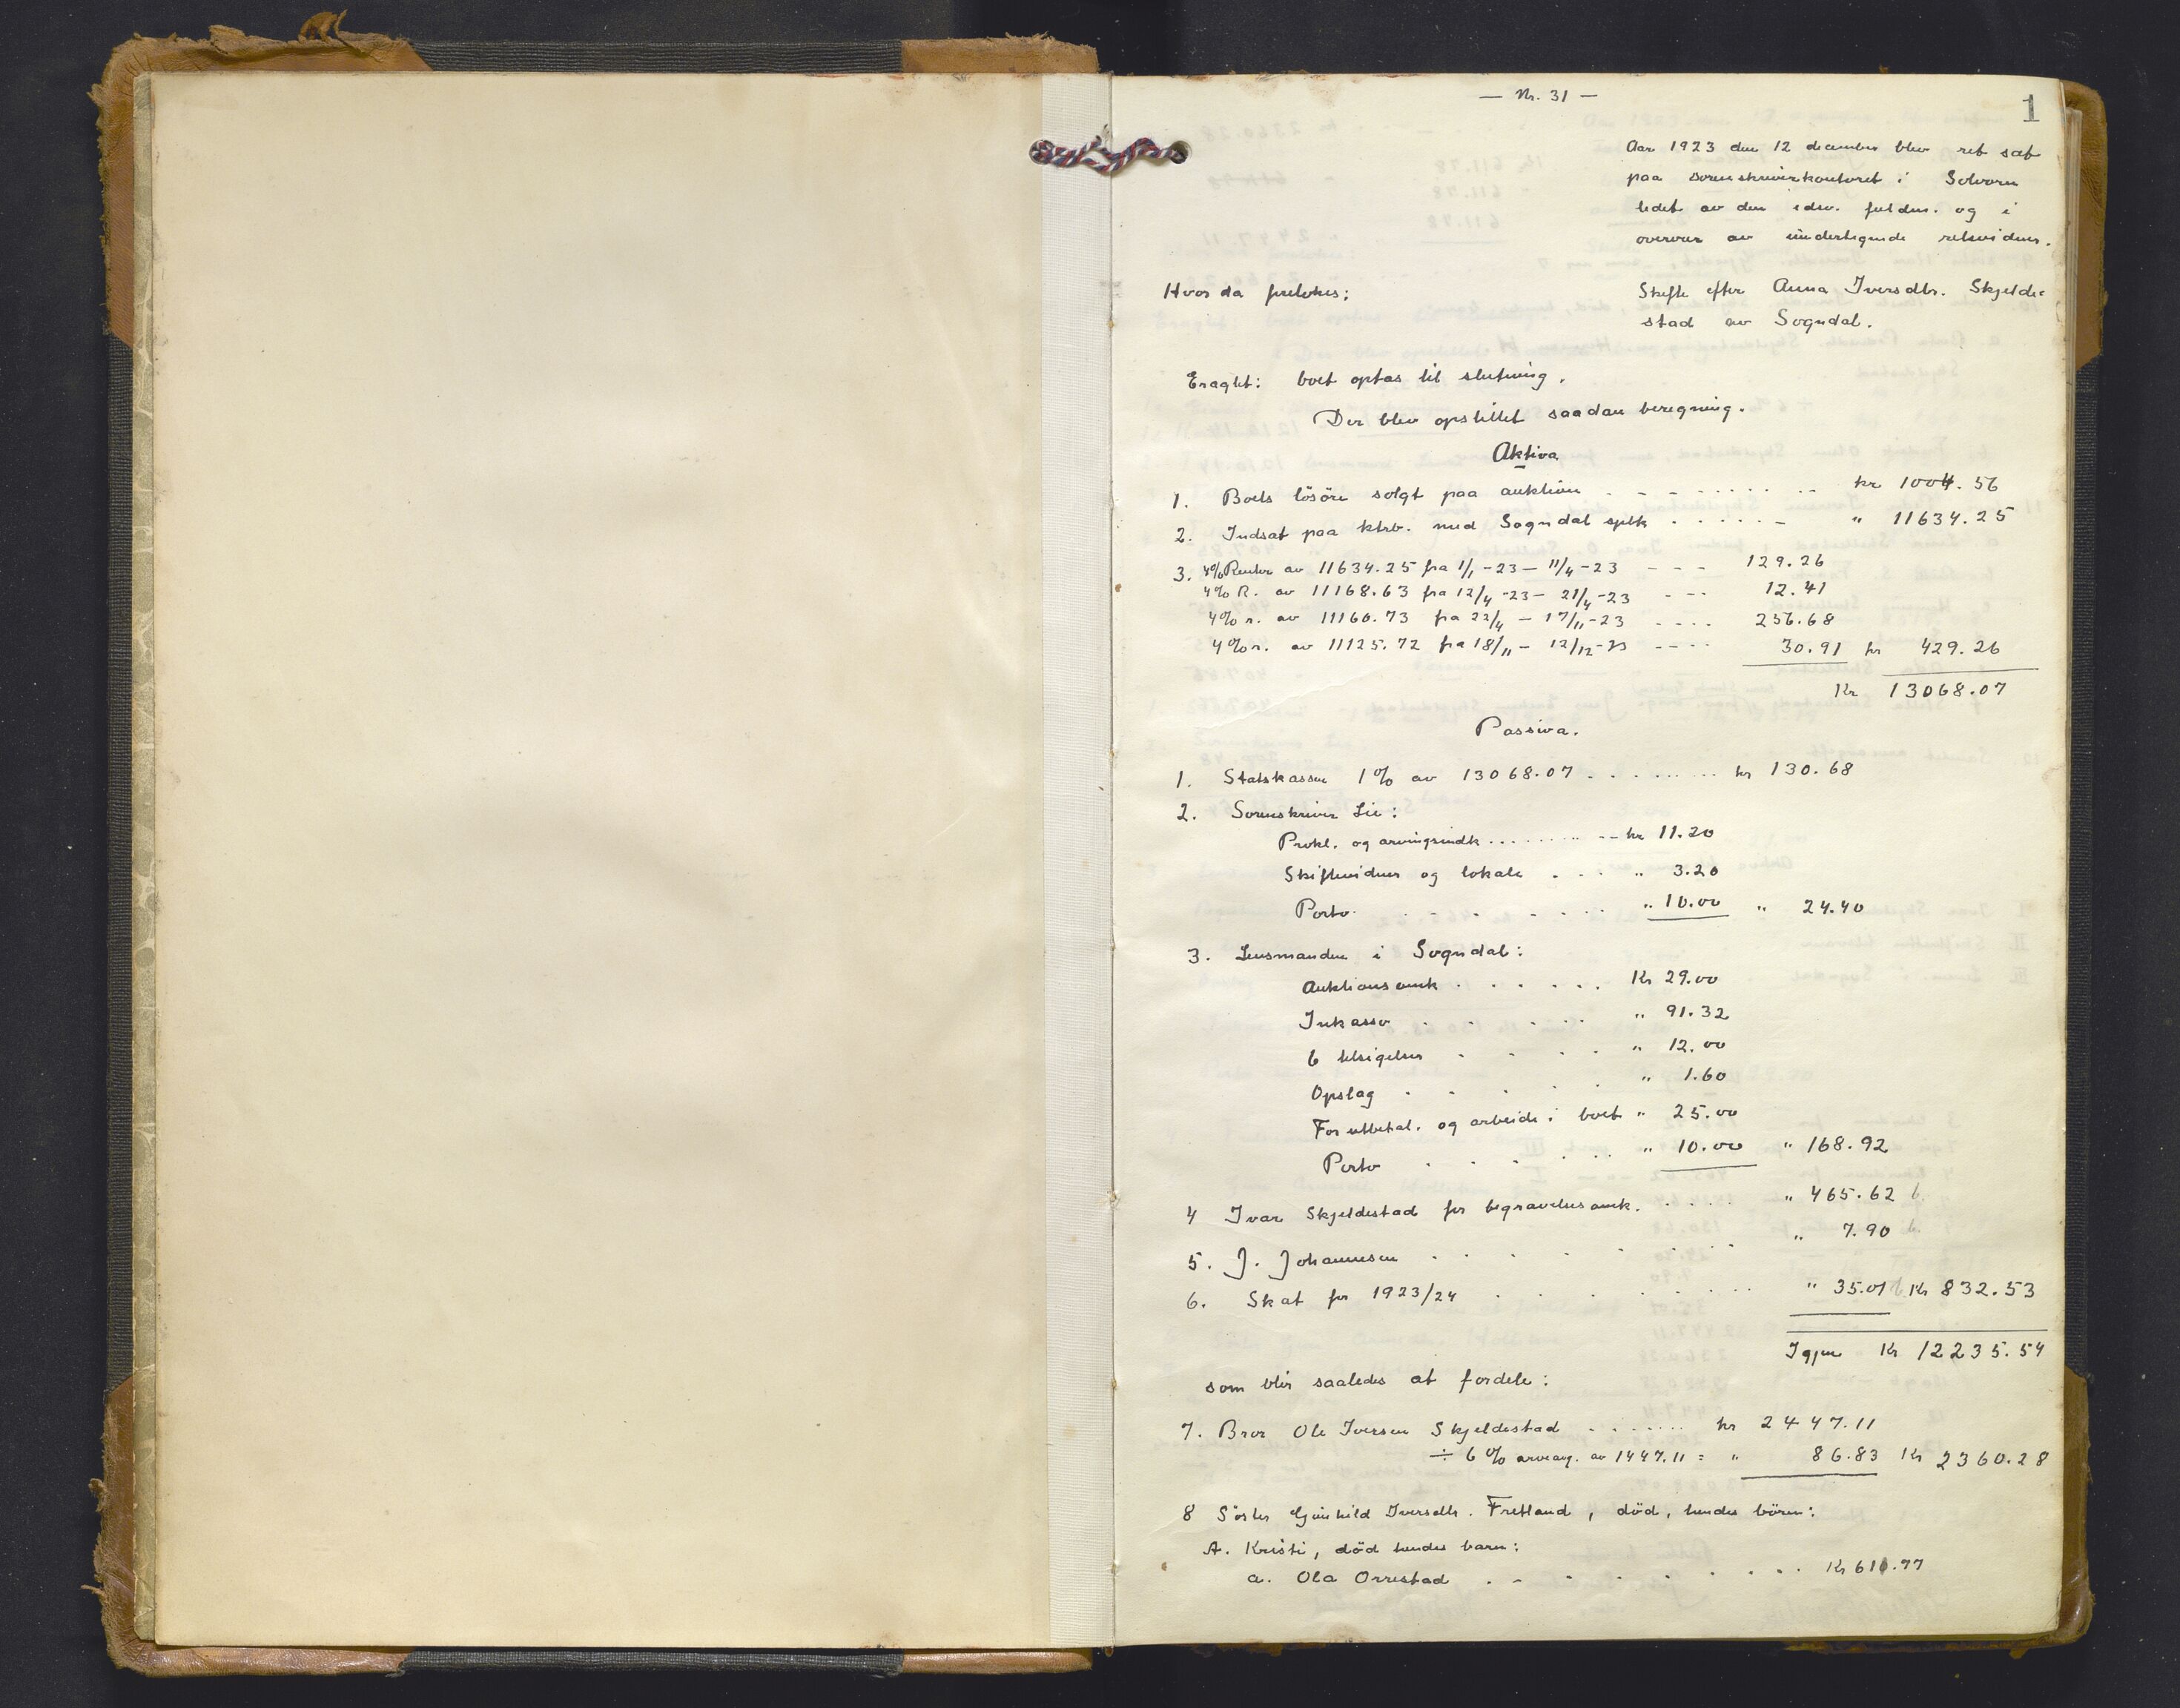 — Nr. 31 —
1
Aar 1923 den 12 december blev ret sat
paa sorenskriverkontoret i Solvorn
ledet av den edsv. fuldm. og i
overvær av undertegnede retsvidner.
Hvor da foretokes:
Skifte efter Anna Iversdtr. Skjelde=
stad av Sogndal.
Eragtet: boet optas til slutning.
Der blev opstillet saadan beregning.
Aktiva
1. Boets lösöre solgt paa auktion . - - ........ kr 1004.56
2. Indsat paa ktrb. med Sogndal spbk . . . . . - " 11634.25
3. 4% Renter av 11634.25 fra 1/1 -23 — 11/4 -23 - - - 129.26
4% R. av 11168.63 fra 12/4 -23 — 21/4 -23 - - - 12.41
4% r. av 11160.73 fra 22/4 — 17/11 -23 - - - - 256.68
4% r. av 11125.72 fra 18/11 — 12/12 -23 - - - - 30.91 kr 429.26
Kr 13068.07
Passiva.
1. Statskassen 1% av 13068.07 . . . . ..... kr 130.68
2. Sorenskriver Lie:
Prokl. og arvingsindk ......... -- kr 11.20
Skiftevidner og lokale . . . " 3.20
Porto . . . . . . . " 10.00 " 24.40
3. Lensmanden i Sogndal:
Auktionsomk . . . . . . Kr 29.00
Inkasso . . . . . " 91.32
6 tilsigelser . . . . " 12.00
Opslag . . . . . " 1.60
For utbetal. og arbeide i boet " 25.00
Porto . . . . . . " 10.00 " 168.92
4 Ivar Skjeldestad for begravelsesomk. . . . . " 465.62 b.
5. J. Johannesen . . . . . . . " 7.90 b.
6. Skat for 1923/24 . . . . . . . " 35.01 b. Kr 832.53
Igjen Kr 12235.54
som blir saaledes at fordele:
7. Bror Ole Iversen Skjeldestad ....... kr 2447.11
÷ 6% arveavg. av 1447.11 = " 86.83 Kr 2360.28
8 Söster Gjünhild Iversdtr. Fretland, död, hendes börn:
A. Kristi, död hendes barn:
a. Ola Orrestad . - . . . . . . . Kr 611.77